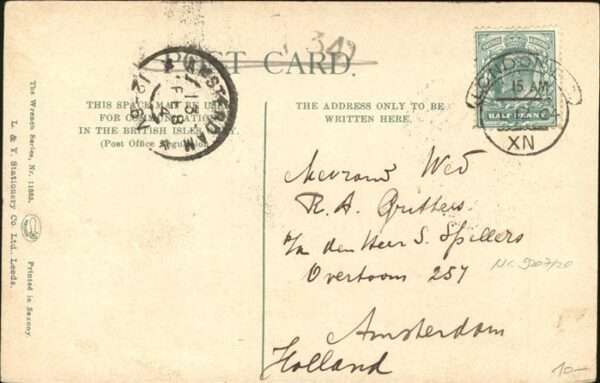 POST CARD.
342
THIS SPACE MAY BE USED
FOR COMMUNICATION
IN THE BRITISH ISLES ONLY.
(Post Office Regulation).
THE ADDRESS ONLY TO BE
WRITTEN HERE.
AMSTERDAM
13 FEB
LONDON
15 AM
XN
HALFPENNY
Mevrouw Wed
R. A. Gritters
p/a den Heer S. Spillers
Overtoom 257
Amsterdam
Holland
Nr. 9207/20
10—
The Wrench Series, Nr. 11863.
Printed in Saxony
L. & Y. Stationery Co Ltd., Leeds.